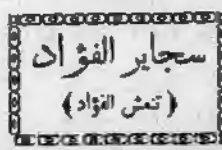 سجاير الفؤاد
( تنعش الفؤاد )